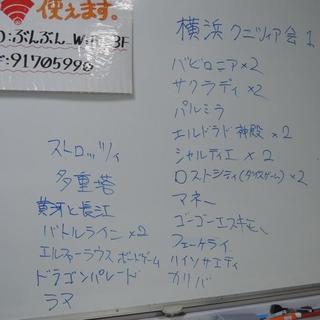 使えます。
D:ぶんぶん_W
3F
:91705990
横浜 クニツィア会
バビロニア×2
サクラディ×2
パルミラ
エルドラド神殿×2
シャルティエ×2
ロストシティ(ダイスゲーム)×2
マネー
ゴーゴーエスキモー
フェーケライ
ハイソサエティ
カリバ
ストロッツィ
多重塔
黄河と長江
バトルライン×2
エルファーラウス ボードゲーム
ドラゴンパレード
ラマ